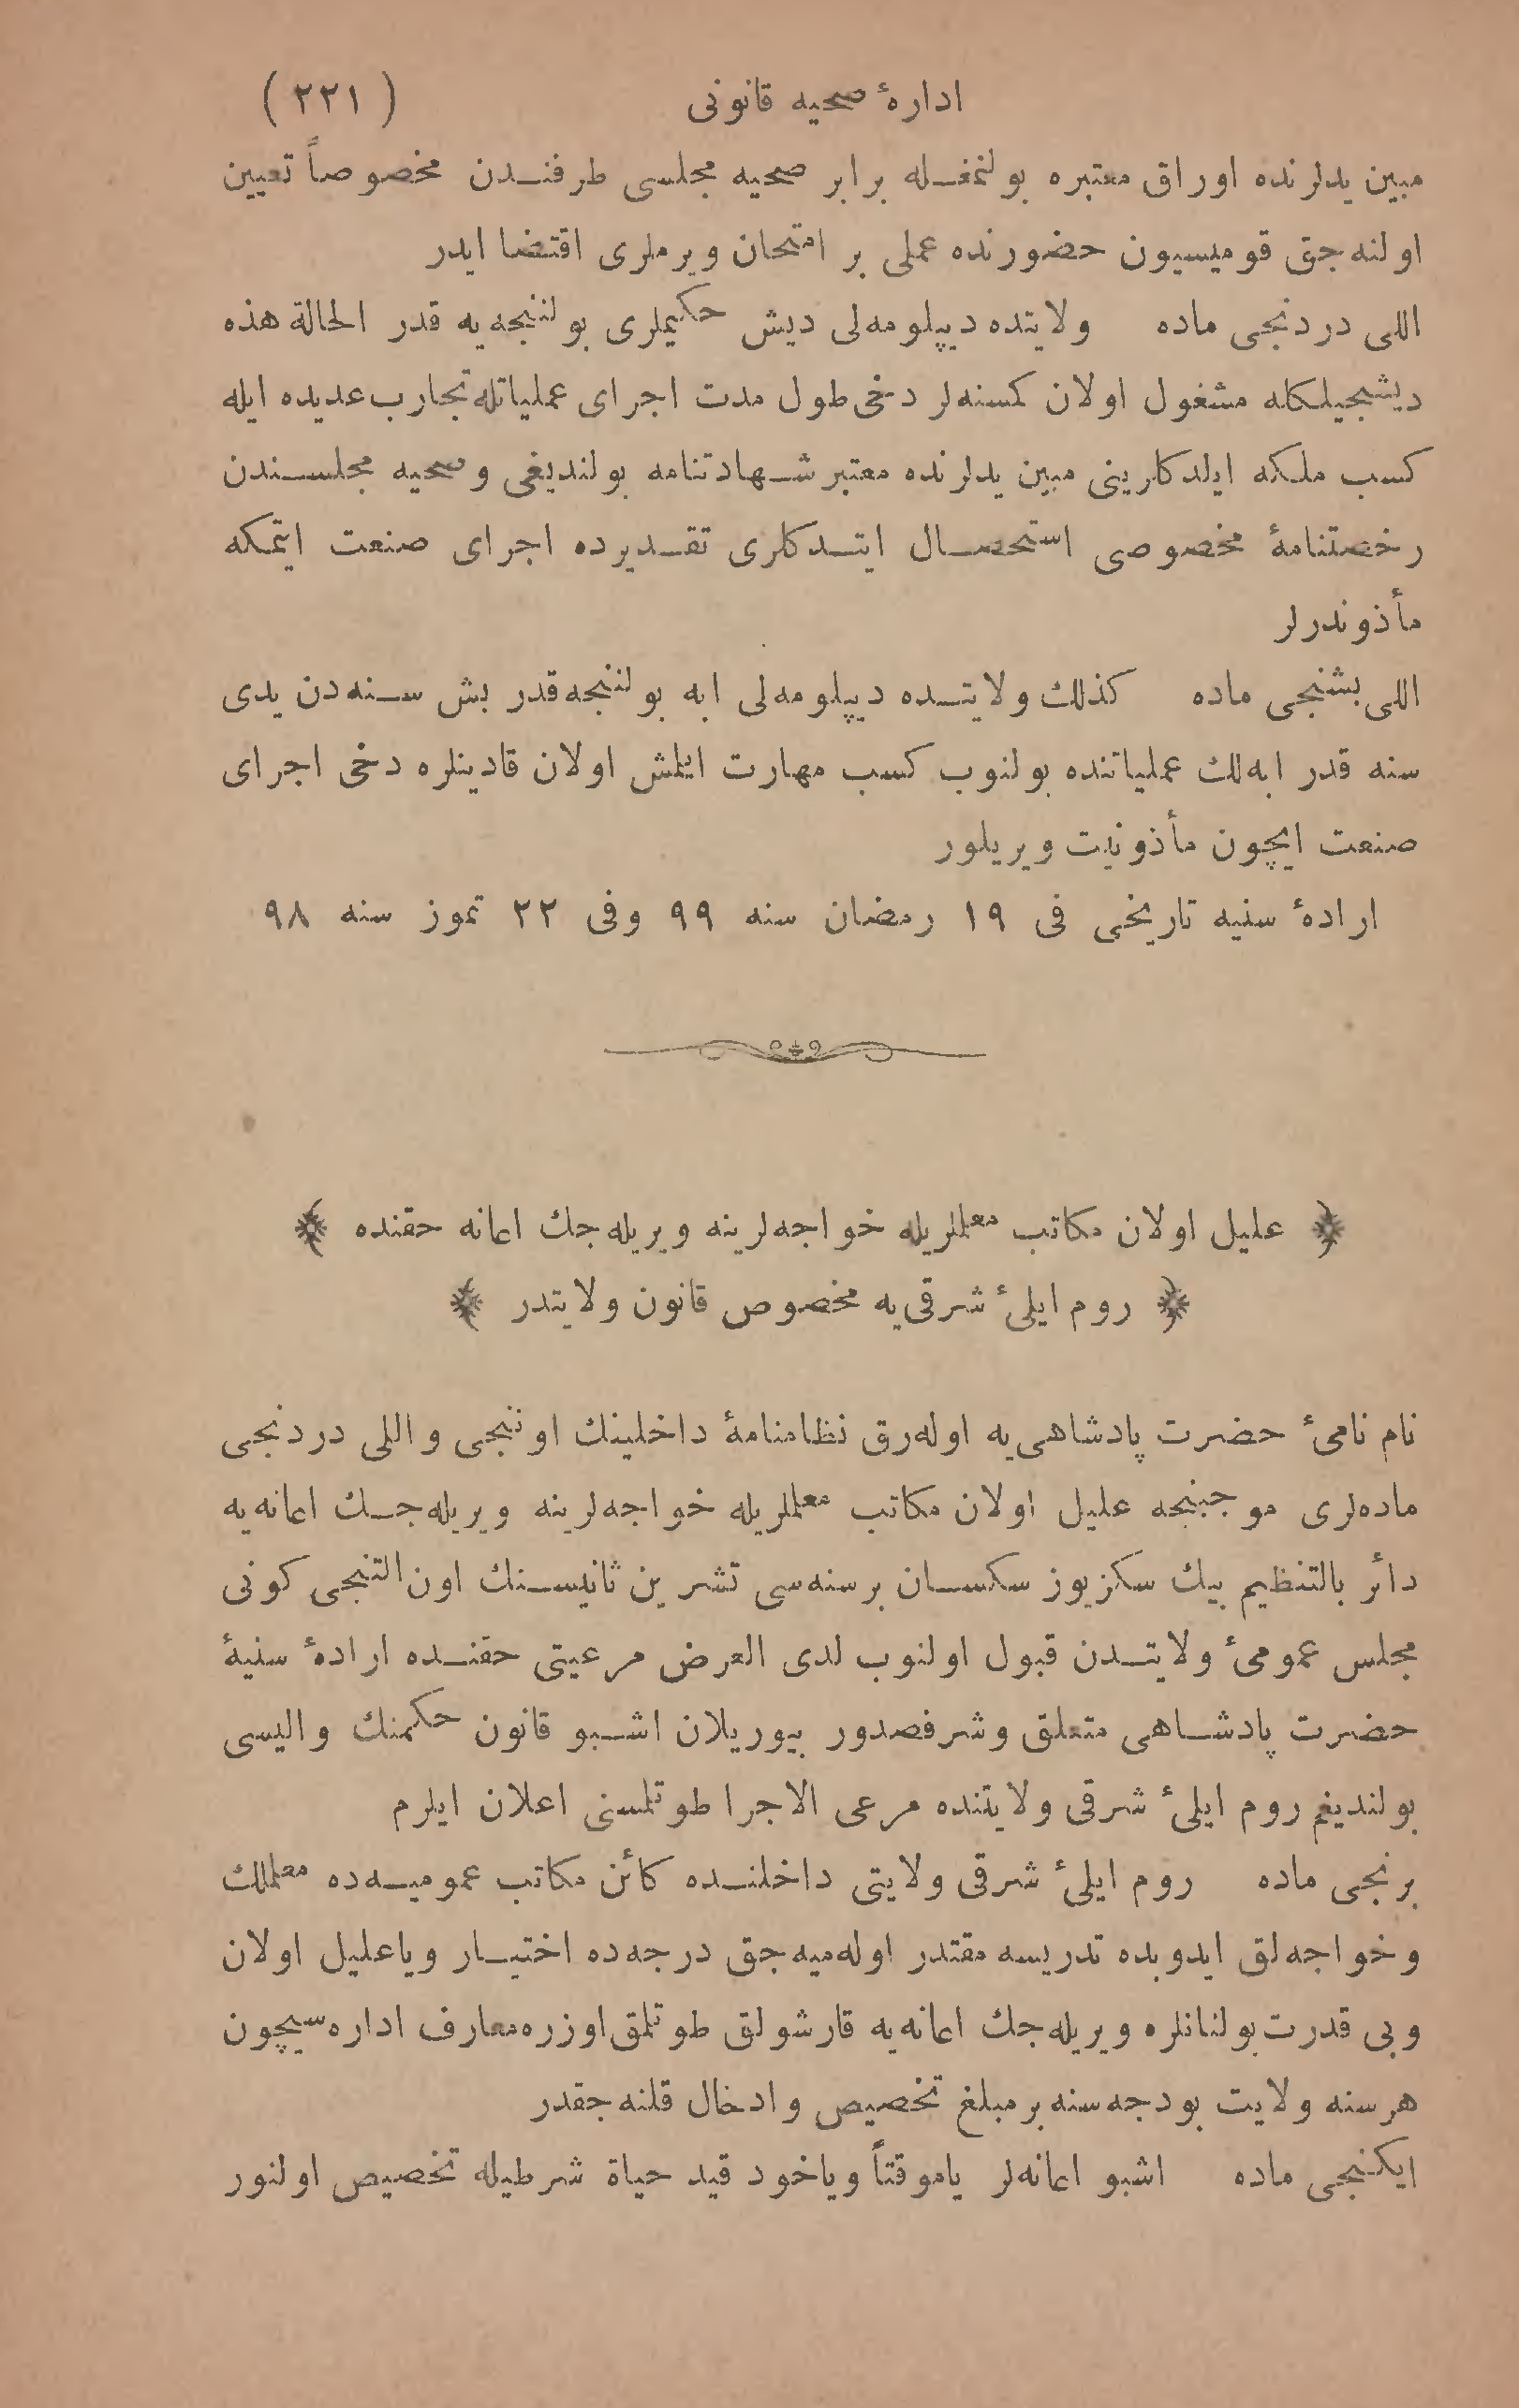 ادارهٔ صحیه قانونی ( ٢٢١ )
مبین یدلرنده اوراق معتبره بولنمغـله برابر صحیه مجلسی طرفنـدن مخصوصاً تعیین
اولنه‌جق قومیسیون حضورنده عملی بر امتحان ویرملری اقتضا ایدر
اللی دردنجی ماده ولایتده دیپلومه‌لی دیش حکیملری بولننجه‌یه قدر الحالة هذه
دیشجیلکله مشغول اولان کمسنه‌لر دخی طول مدت اجرای عملیاتله تجارب عدیده ایله
کسب ملکه ایلدکلرینی مبین یدلرنده معتبر شـهادتنامه بولندیغی و صحیه مجلسـندن
رخصتنامهٔ مخصوصی استحصـال ایتـدکلری تقـدیرده اجرای صنعت ایتمکه
مأذوندرلر
اللی بشنجی ماده کذلك ولایتـده دیپلومه‌لی ابه بولننجه‌قدر بش سـنه‌دن یدی
سنه قدر ابه‌لك عملیاتنده بولنوب کسب مهارت ایلمش اولان قادینلره دخی اجرای
صنعت ایچون مأذونیت ویریلور
ارادهٔ سنیه تاریخی فی ١٩ رمضان سنه ٩٩ وفی ٢٢ تموز سنه ٩٨
﴿ علیل اولان مکاتب معلملریله خواجه‌لرینه ویریله‌جك اعانه حقنده ﴾
﴿ روم ایلیٔ شرقی‌یه مخصوص قانون ولایتدر ﴾
نام نامیٔ حضرت پادشاهی‌یه اوله‌رق نظامنامهٔ داخلینك اوننجی و اللی دردنجی
ماده‌لری موجبنجه علیل اولان مکاتب معلملریله خواجه‌لرینه ویریله‌جـك اعانه‌یه
دائر بالتنظیم بیك سکزیوز سکسـان برسنه‌سی تشرین ثانیسـنك اون التنجی کونی
مجلس عمومیٔ ولایتـدن قبول اولنوب لدی العرض مرعیتی حقنـده ارادهٔ سنیهٔ
حضرت پادشـاهی متعلق و شرفصدور بیوریلان اشـبو قانون حکمنك والیسی
بولندیغم روم ایلیٔ شرقی ولایتنده مرعی الاجرا طوتلمسنی اعلان ایلرم
برنجی ماده روم ایلیٔ شرقی ولایتی داخلنـده کائن مکاتب عمومیـه‌ده معلملك
و خواجه‌لق ایدوبده تدریسه مقتدر اوله‌میه‌جق درجه‌ده اختیـار ویا علیل اولان
و بی قدرت بولنانلره ویریله‌جك اعانه‌یه قارشولق طوتلمق اوزره معارف اداره‌سیچون
هر سنه ولایت بودجه‌سنه بر مبلغ تخصیص و ادخال قلنه‌جقدر
ایکنجی ماده اشبو اعانه‌لر یا موقتاً ویاخود قید حیاة شرطیله تخصیص اولنور